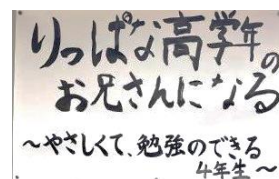 りっぱな高学年の
お兄さんになる
~やさしくて、勉強のできる
4年生~